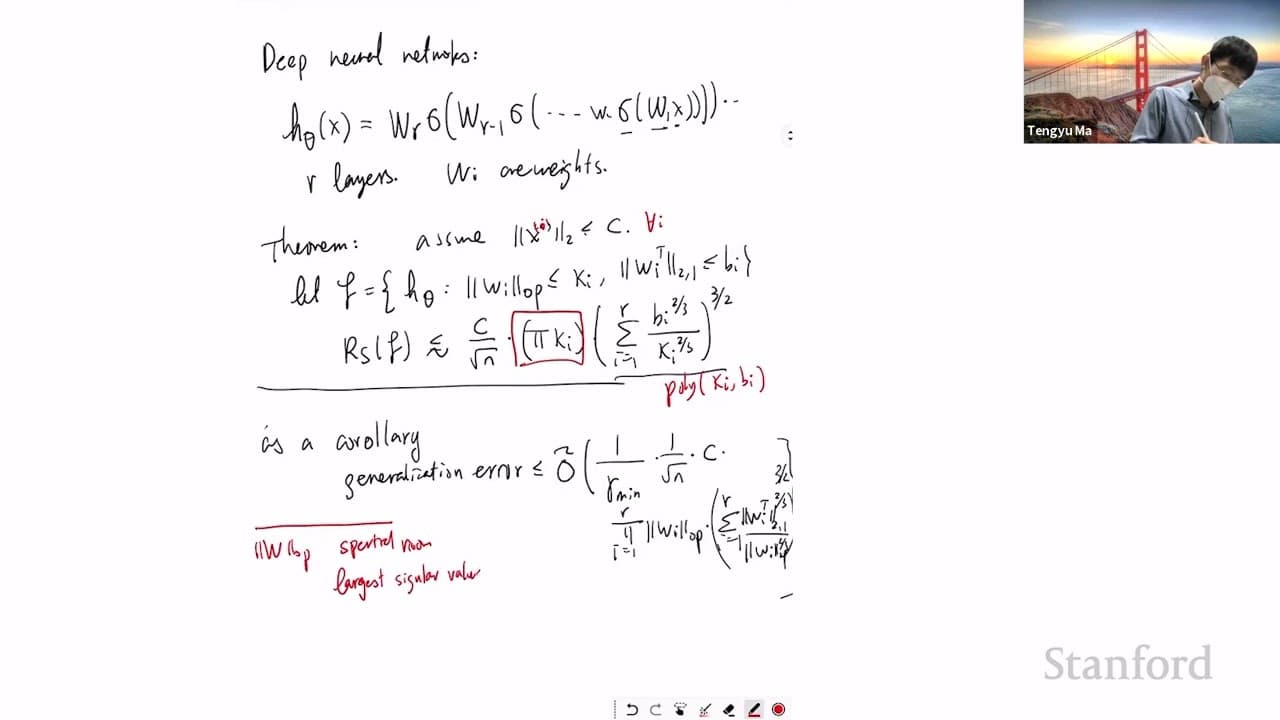 Deep neural networks:
hθ(x) = Wr σ(Wr-1 σ(··· W. σ(W1x)))··
r layers. Wi are weights.
Theorem: assme ||x^(i)||2 ≤ C. ∀i
let F = { hθ : ||Wi||op ≤ Ki, ||Wi^T||2,1 ≤ bi}
Rs(F) ≲ C/√n · (Π Ki) (Σ_{i=1}^r bi^{2/3}/Ki^{2/3})^{3/2}
poly(Ki, bi)
as a corollary
generalization error ≤ Õ( 1/γmin · 1/√n · C·
Π_{i=1}^r ||Wi||op · (Σ_{i=1}^r ||Wi^T||2,1^{2/3} / ||Wi||op^{2/3})^{3/2}
||W||op spectral norm
largest sigular value
Tengyu Ma
Stanford